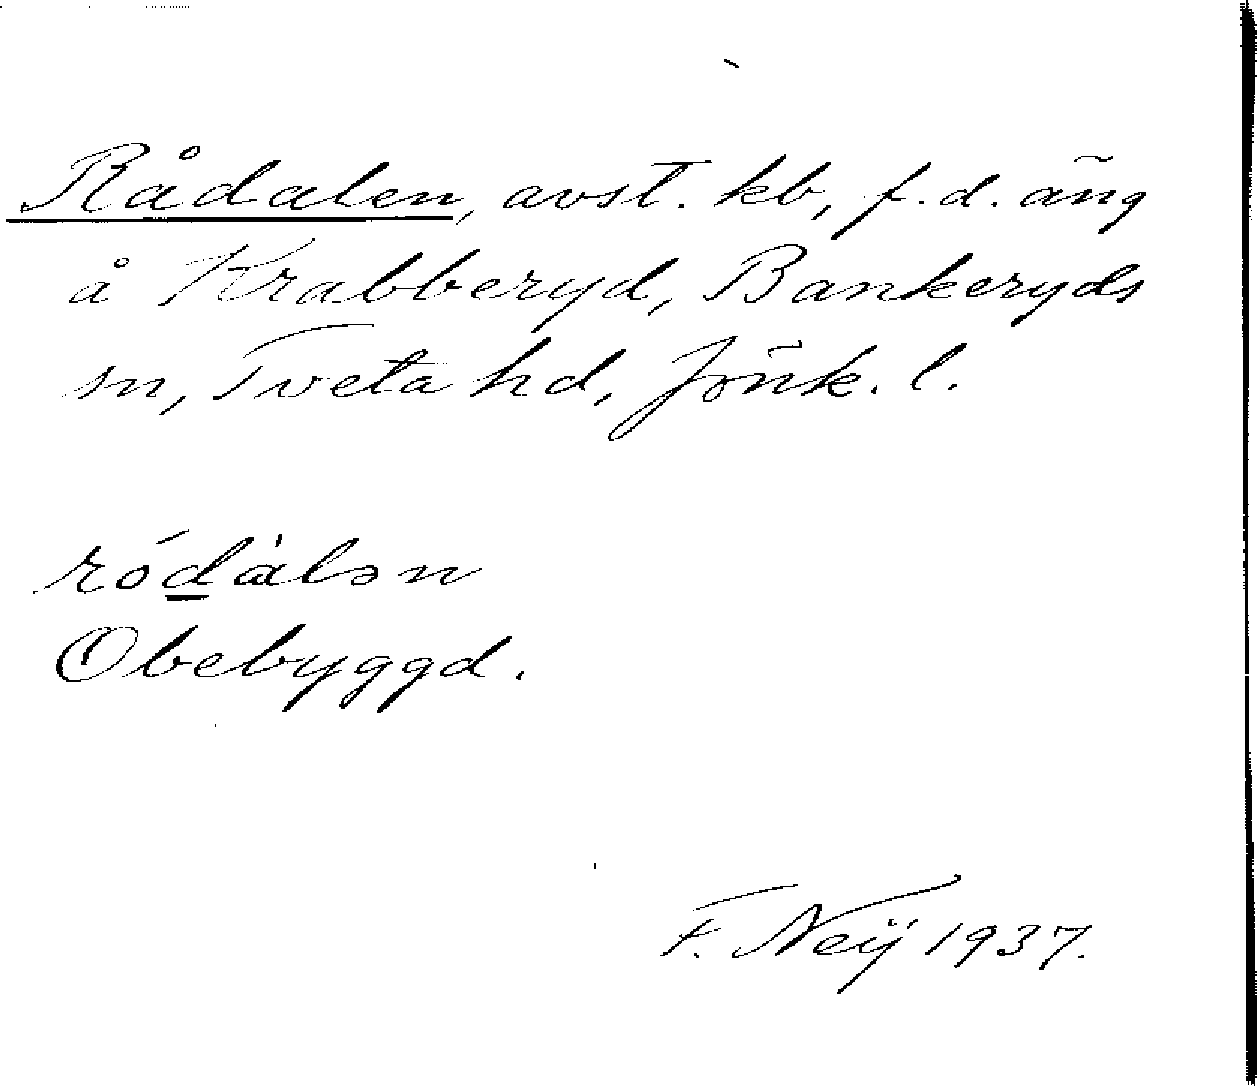 Rådalen, avst. kb, f.d. äng
å Krabberyd, Bankeryds
sn, Tveta hd, Jönk. l.
ródàlən
Obebyggd.
F. Neÿ 1937.